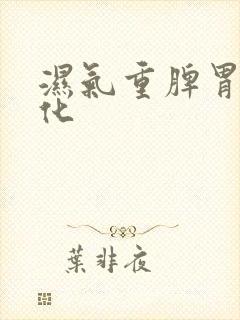 濕氣重脾胃
化
葉非夜